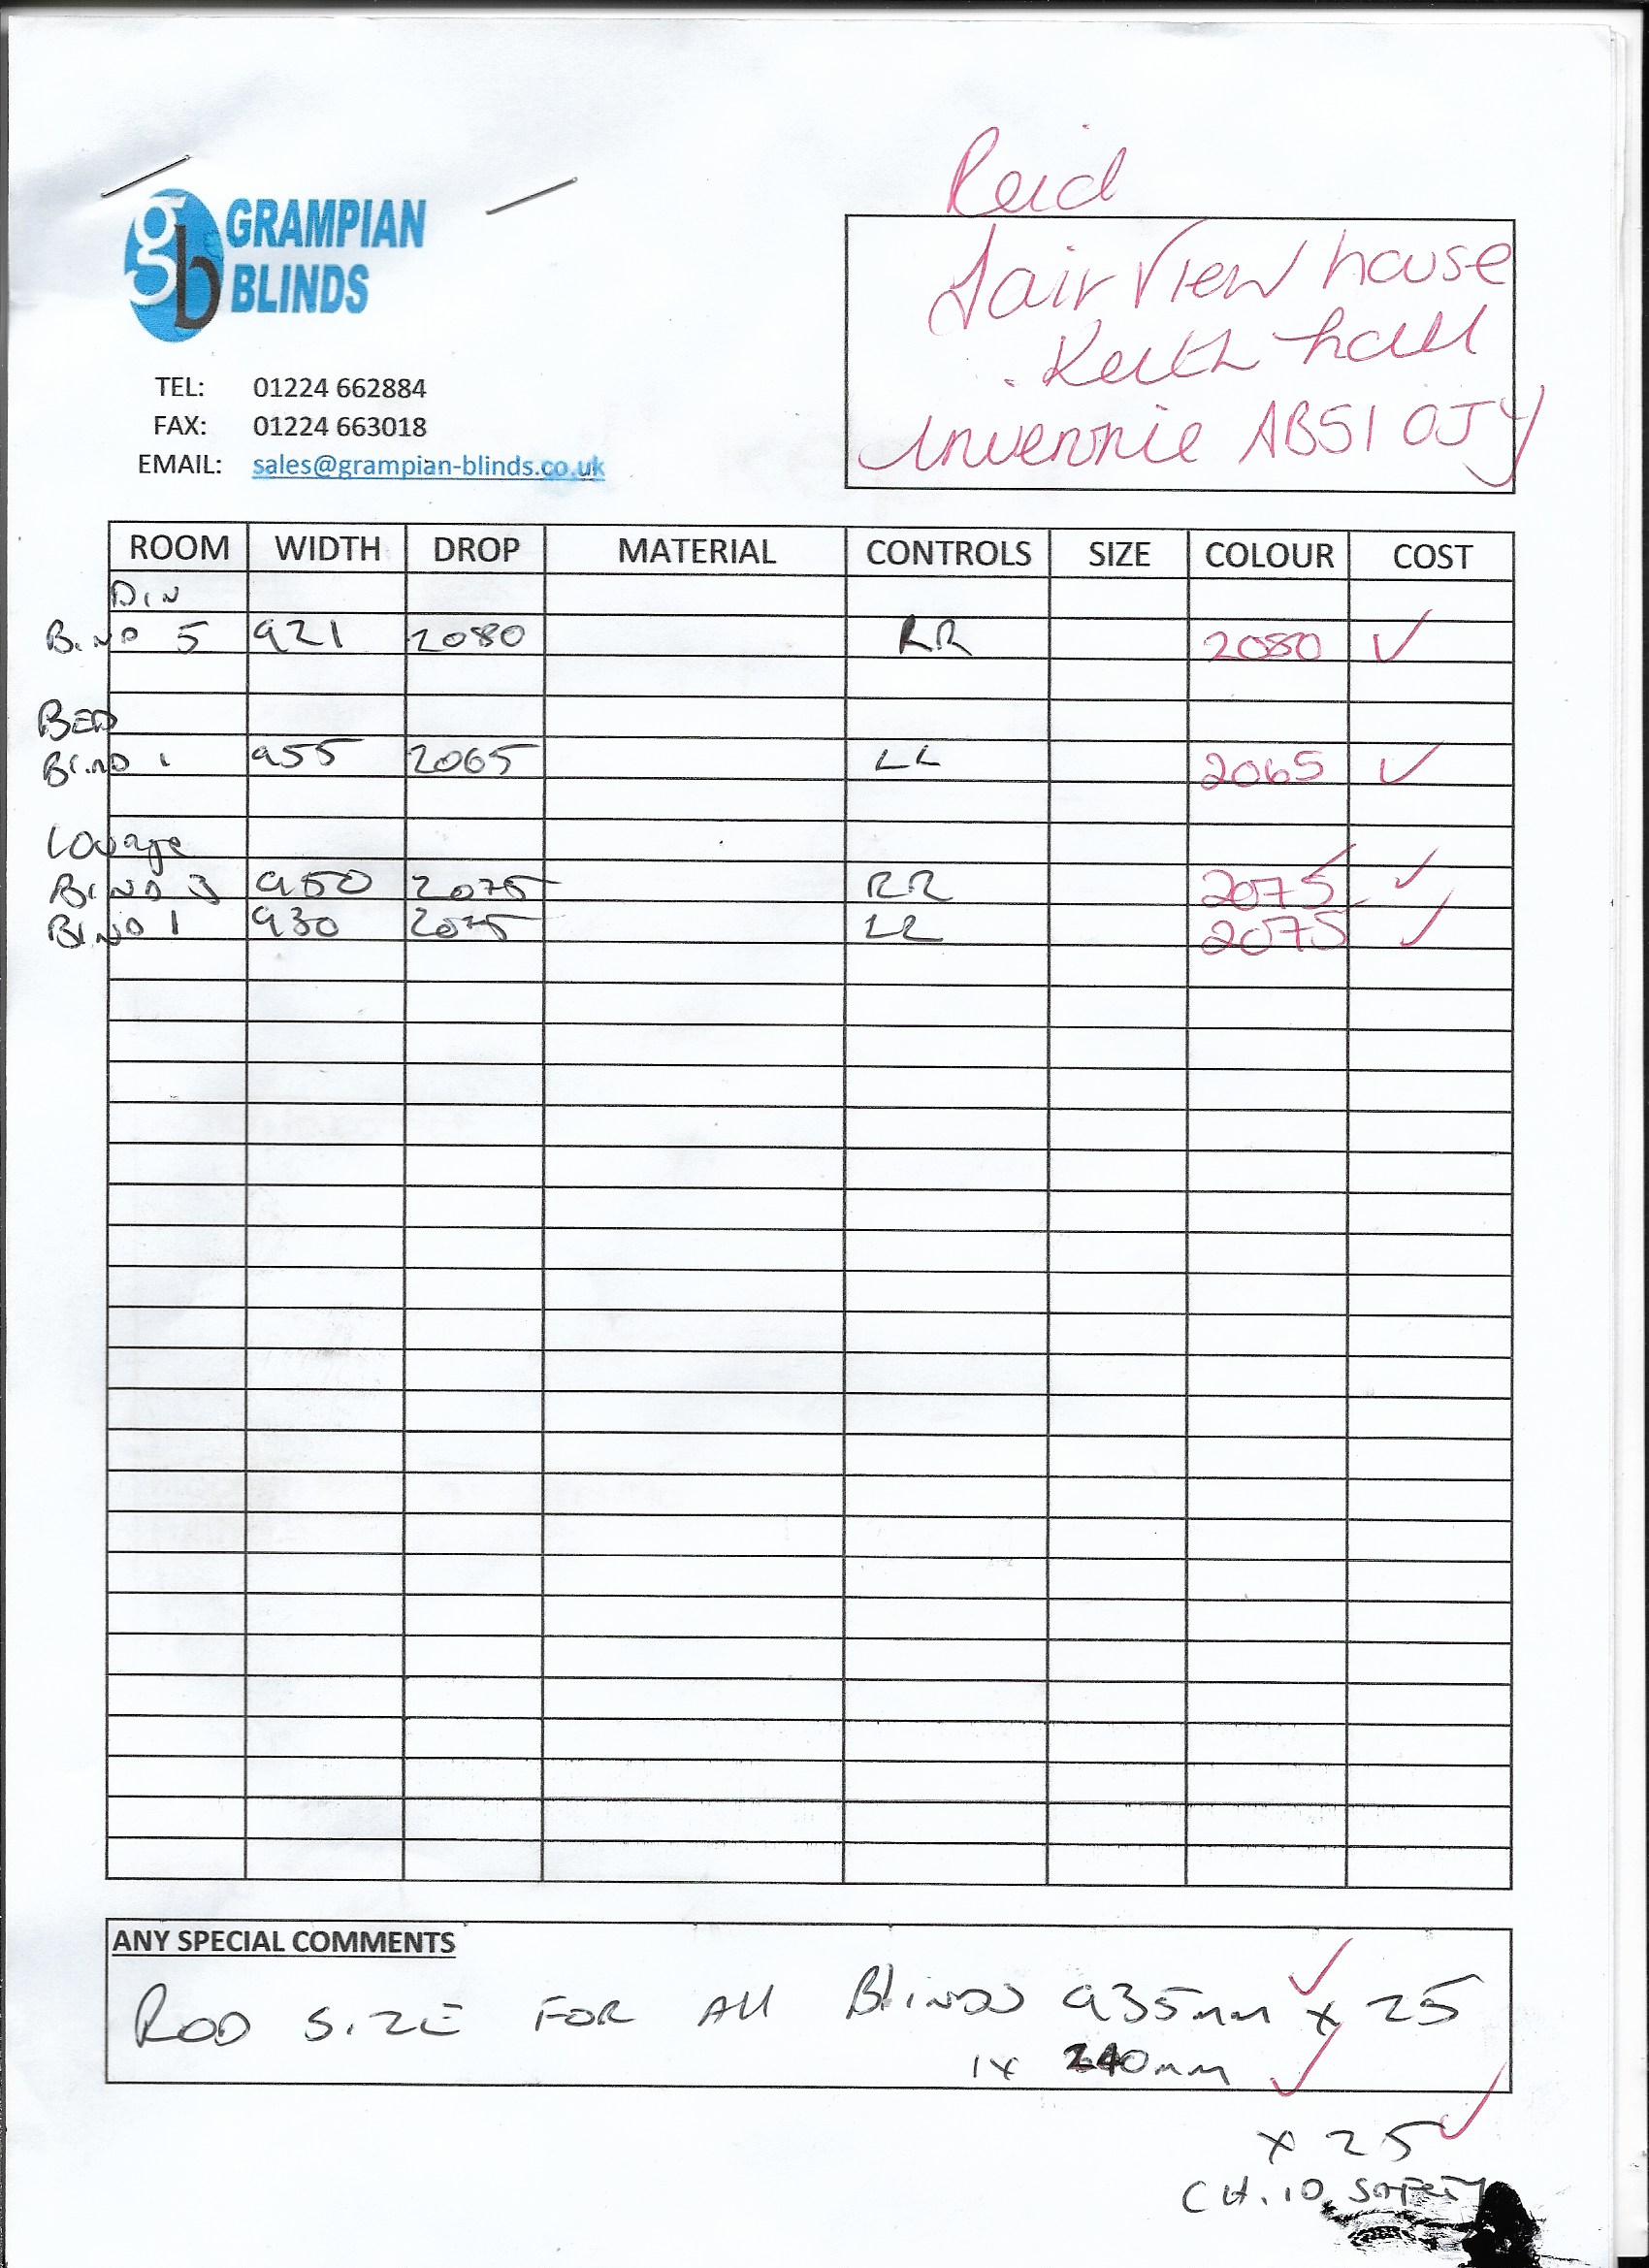 Reid
gb GRAMPIAN
BLINDS
fair View house
Keith hall
inverurie AB51 0JY
TEL: 01224 662884
FAX: 01224 663018
EMAIL: sales@grampian-blinds.co.uk
ROOM WIDTH DROP MATERIAL CONTROLS SIZE COLOUR COST
DIN
BLIND 5 921 2080 RR 2080 ✓
BED
BLIND 1 955 2065 LL 2065 ✓
Lounge
BLIND 3 950 2075 RR 2075 ✓
BLIND 1 930 2075 LL 2075 ✓
ANY SPECIAL COMMENTS
ROD SIZE FOR All BLINDS 935mm ✓ x 25
1x 240mm ✓
x 25 ✓
CHILD SAFETY